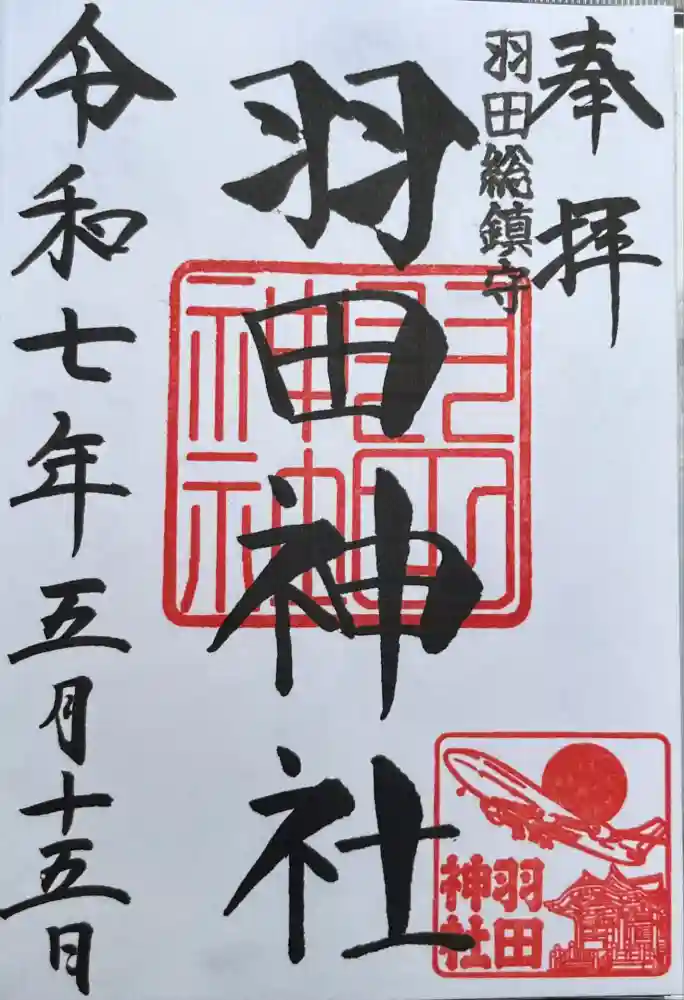 奉拝
羽田総鎮守
羽田神社
羽田
神社
羽田
神社
令和七年五月十五日